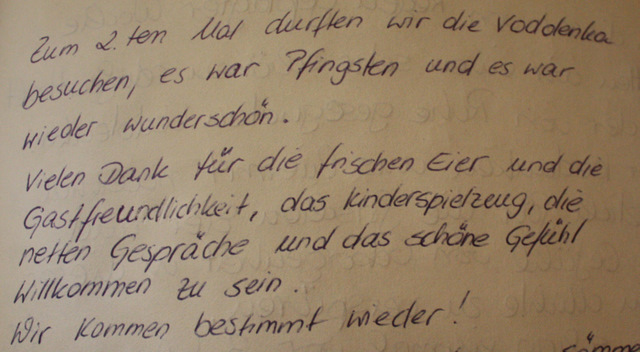 Zum 2.ten Mal durften wir die Voddenka
besuchen, es war Pfingsten und es war
wieder wunderschön.
Vielen Dank für die frischen Eier und die
Gastfreundlichkeit, das Kinderspielzeug, die
netten Gespräche und das schöne Gefühl
Willkommen zu sein.
Wir kommen bestimmt wieder!